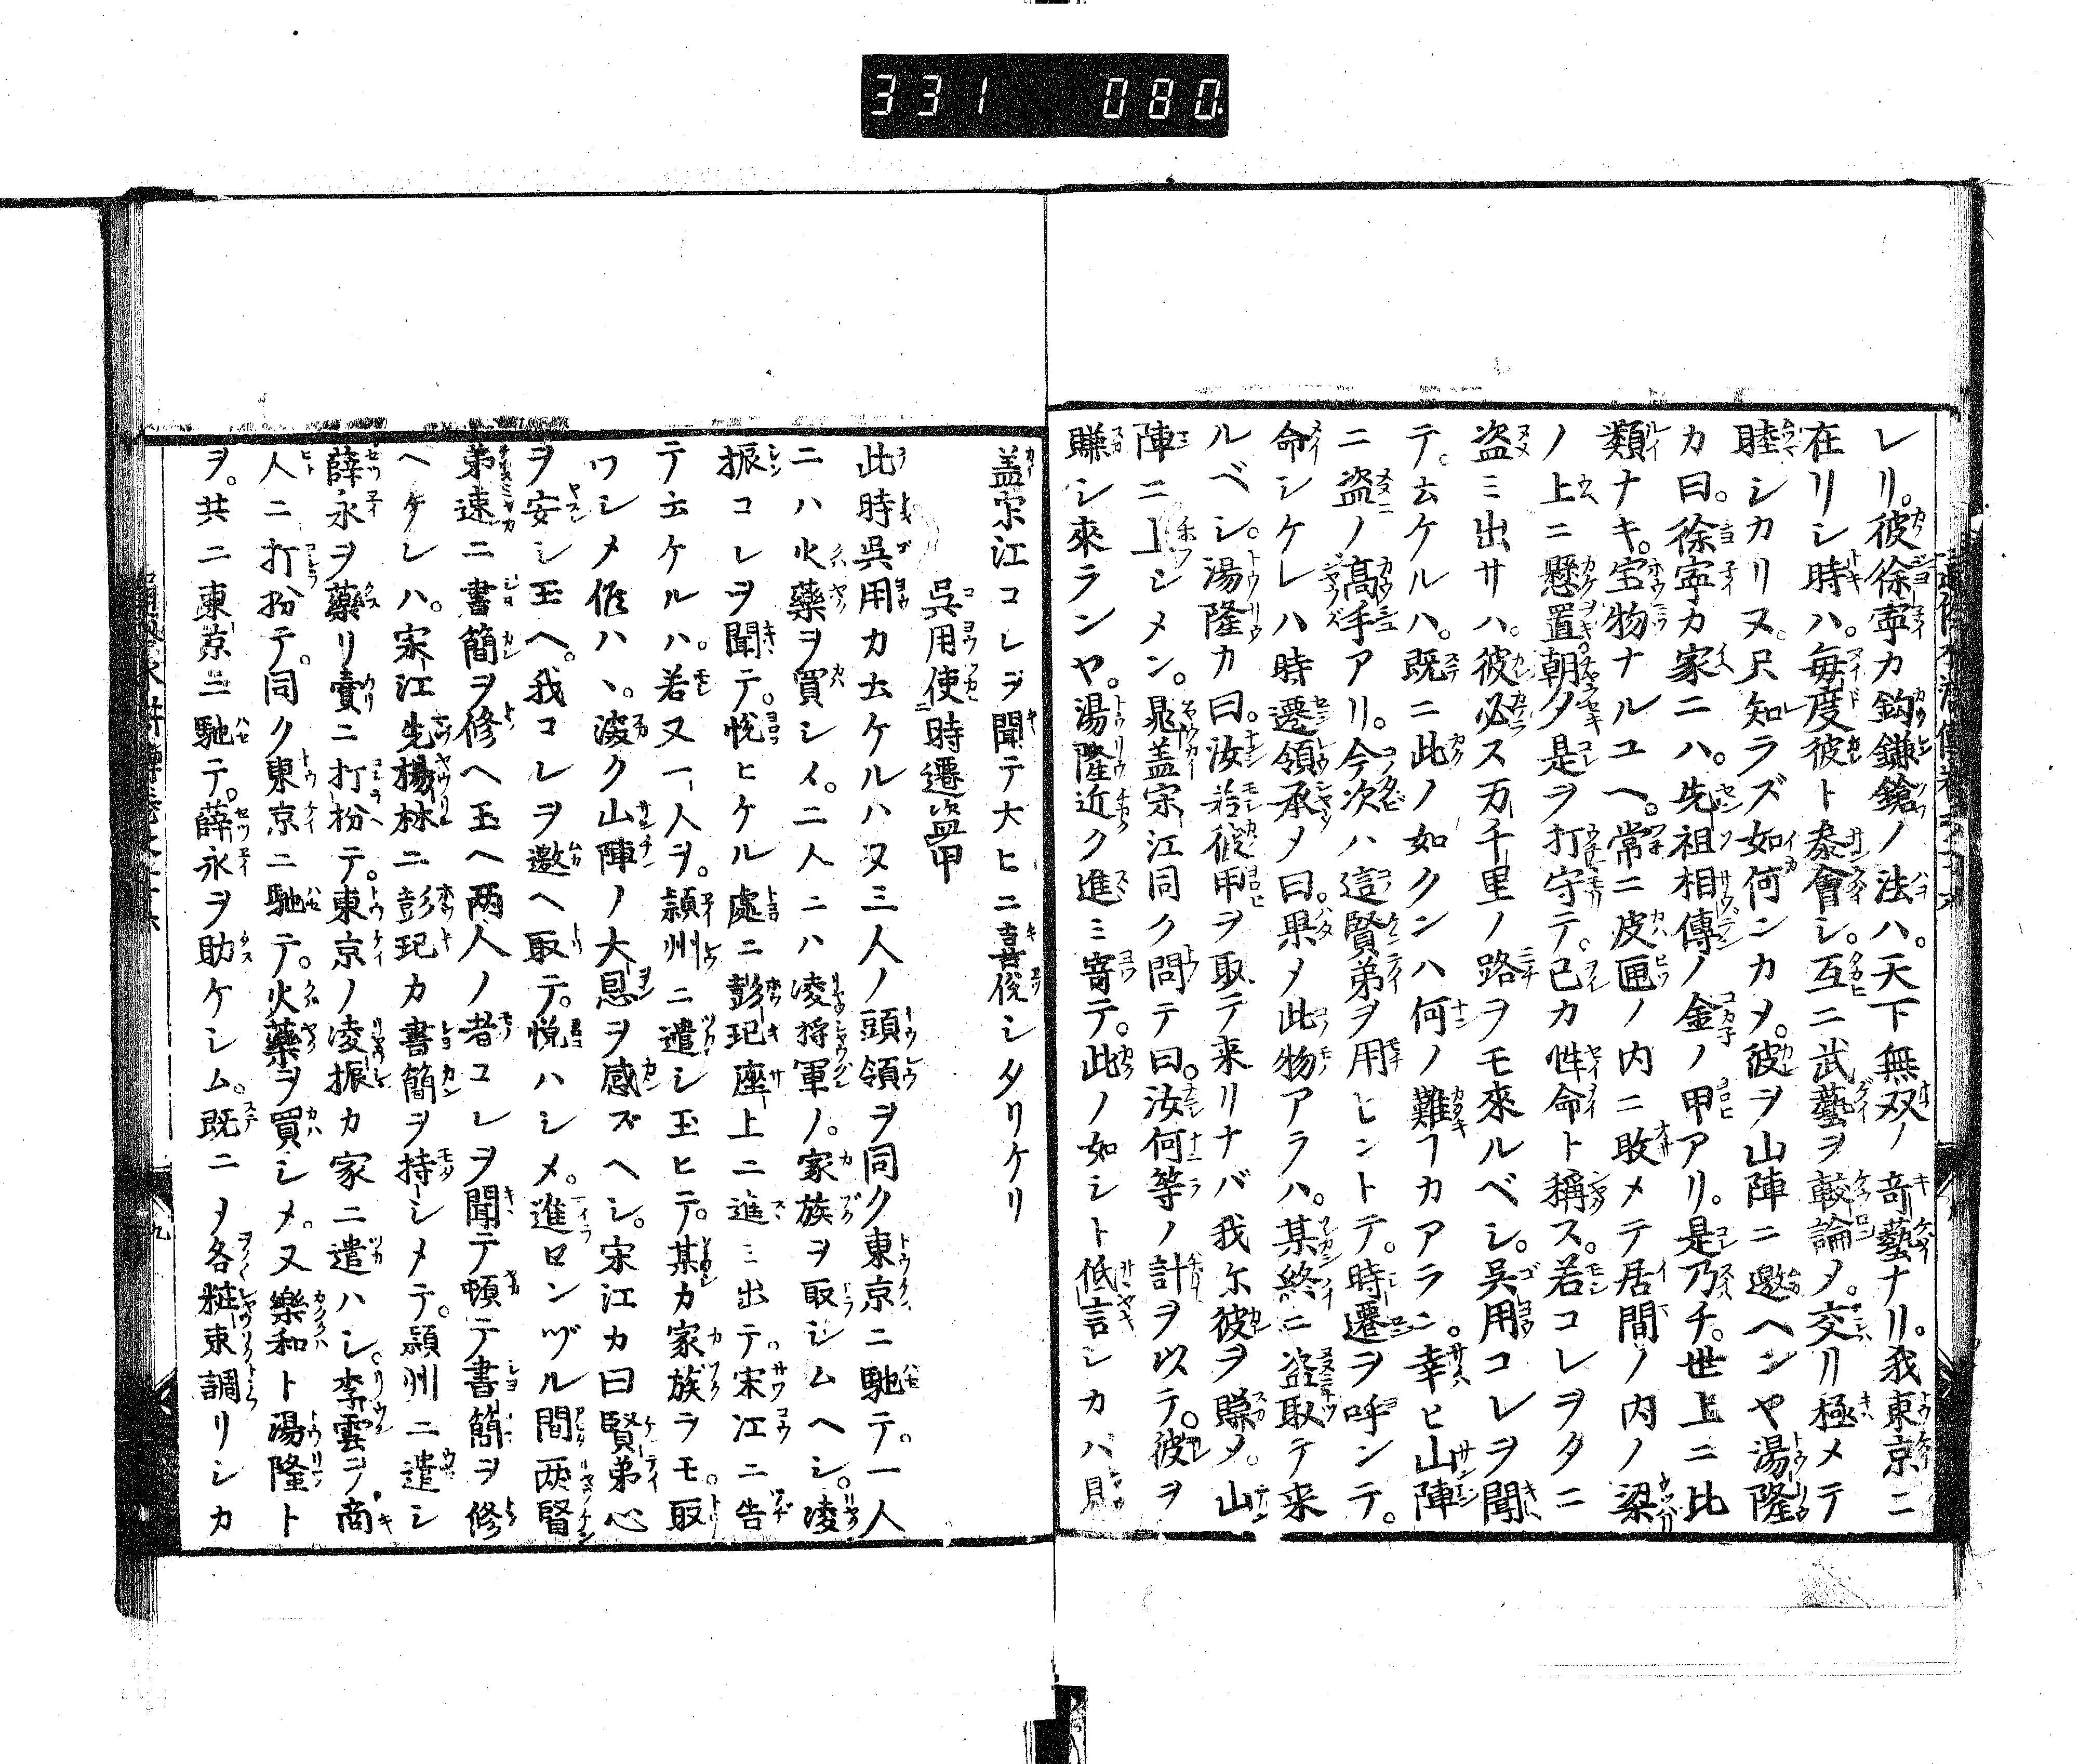 331 080
レリ。彼徐寧カ鈎鎌鎗ノ法ハ。天下無双ノ奇藝ナリ。我東京ニ
在リシ時ハ。毎度彼ト参會シ。互ニ武藝ヲ較論メ。交リ極メテ
睦シカリヌ。只知ラズ如何ンカメ。彼ヲ山陣ニ邀ヘンヤ湯隆
カ曰。徐寧カ家ニハ。先祖相傳ノ金ノ甲アリ。是乃チ。世上ニ比
類ナキ。宝物ナルユヘ。常ニ皮匣ノ内ニ收メテ居間ノ内ノ梁
ノ上ニ懸置朝夕是ヲ打守テ。己カ性命ト稱ス。若コレヲタニ
盗ミ出サハ。彼必ス万千里ノ路ヲモ來ルベシ。呉用コレヲ聞
テ。云ケルハ。既ニ此ノ如クンハ何ノ難ヿカアラン。幸ヒ山陣
ニ盗ノ髙手アリ。今次ハ這賢弟ヲ用ヒントテ。時遷ヲ呼ンテ。
命シケレハ時遷領承メ曰。果メ此物アラハ。某終ニ盗取テ来
ルベシ。湯隆カ曰。汝若彼甲ヲ取テ来リナバ我尓彼ヲ賺メ。山
陣ニ上シメン。晁盖宗江同ク問テ曰。汝何等ノ計ヲ以テ。彼ヲ
賺シ來ランヤ。湯隆近ク進ミ寄テ。此ノ如シト低言シカバ晁
盖宗江コレヲ聞テ大ヒニ喜悦シタリケリ
呉用使時遷盗甲
此時呉用カ云ケルハ又三人ノ頭領ヲ同ク東京ニ馳テ。一人
ニハ火藥ヲ買シメ。二人ニハ凌将軍ノ。家族ヲ取シムヘシ。凌
振コレヲ聞テ。悦ヒケル處ニ彭玘座上ニ進ミ出テ。宋江ニ告
テ云ケルハ。若又一人ヲ。頴州ニ遣シ玉ヒテ。某カ家族ラモ。取
ワシメ倐ハヽ。深ク山陣ノ大恩ヲ感ズヘシ。宋江カ曰賢弟心
ヲ安シ玉ヘ。我コレヲ邀ヘ取テ。悦ハシメ。進ロンヅル間両賢
弟速ニ書簡ヲ修ヘ玉ヘ両人ノ者コレヲ聞テ頓テ書簡ヲ修
ヘケレハ。宋江先楊林ニ彭玘カ書簡ヲ持シメテ。頴州ニ遣シ
薛永ヲ藥リ賣ニ打扮テ。東京ノ凌振カ家ニ遣ハシ。李雲ヲ商
人ニ打扮テ。同ク東京ニ馳テ。火藥ヲ買シメ。又樂和ト湯隆ト
ヲ。共ニ東京ニ馳テ。薛永ヲ助ケシム。既ニメ各粧束調リシカ
九